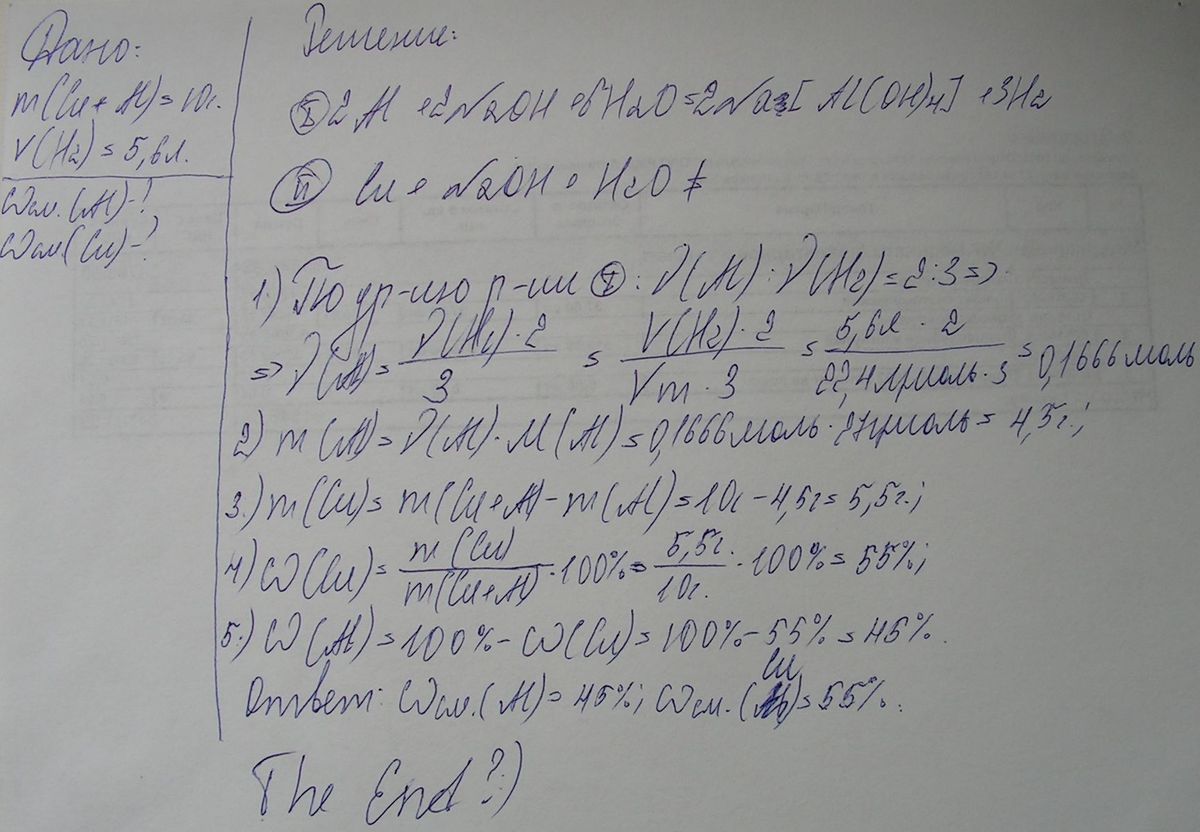 Дано:
m(Cu+Al)=10г.
V(H2)=5,6л.
Wсм.(Al)-?
Wсм(Cu)-?
Решение:
I 2Al+2NaOH+6H2O=2Na[Al(OH)4]+3H2
II Cu+NaOH+H2O≠
1.) По ур-нию р-ии I: ν(Al):ν(H2)=2:3=>
=> ν(Al)= ν(H2)·2 / 3 = V(H2)·2 / Vm·3 = 5,6л·2 / 22,4л/моль·3 = 0,1666моль
2) m(Al)=ν(Al)·M(Al)=0,1666моль·27г/моль=4,5г.;
3.) m(Cu)=m(Cu+Al)-m(Al)=10г-4,5г=5,5г.;
4) W(Cu)= m(Cu) / m(Cu+Al) ·100%= 5,5г. / 10г. ·100%=55%;
5.) W(Al)=100%-W(Cu)=100%-55%=45%.
Ответ: Wсм.(Al)=45%; Wсм.(Cu)=55%.
The End?:)